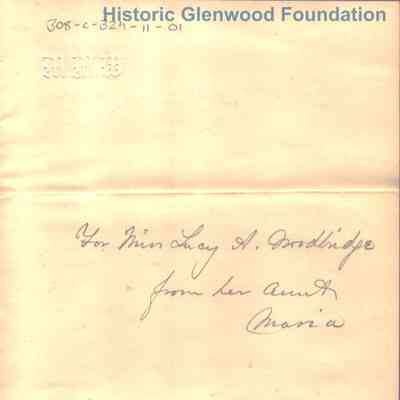 Historic Glenwood Foundation
308-C-32A-11-01
For Miss Lucy A. Woodbridge
from her aunt
Maria